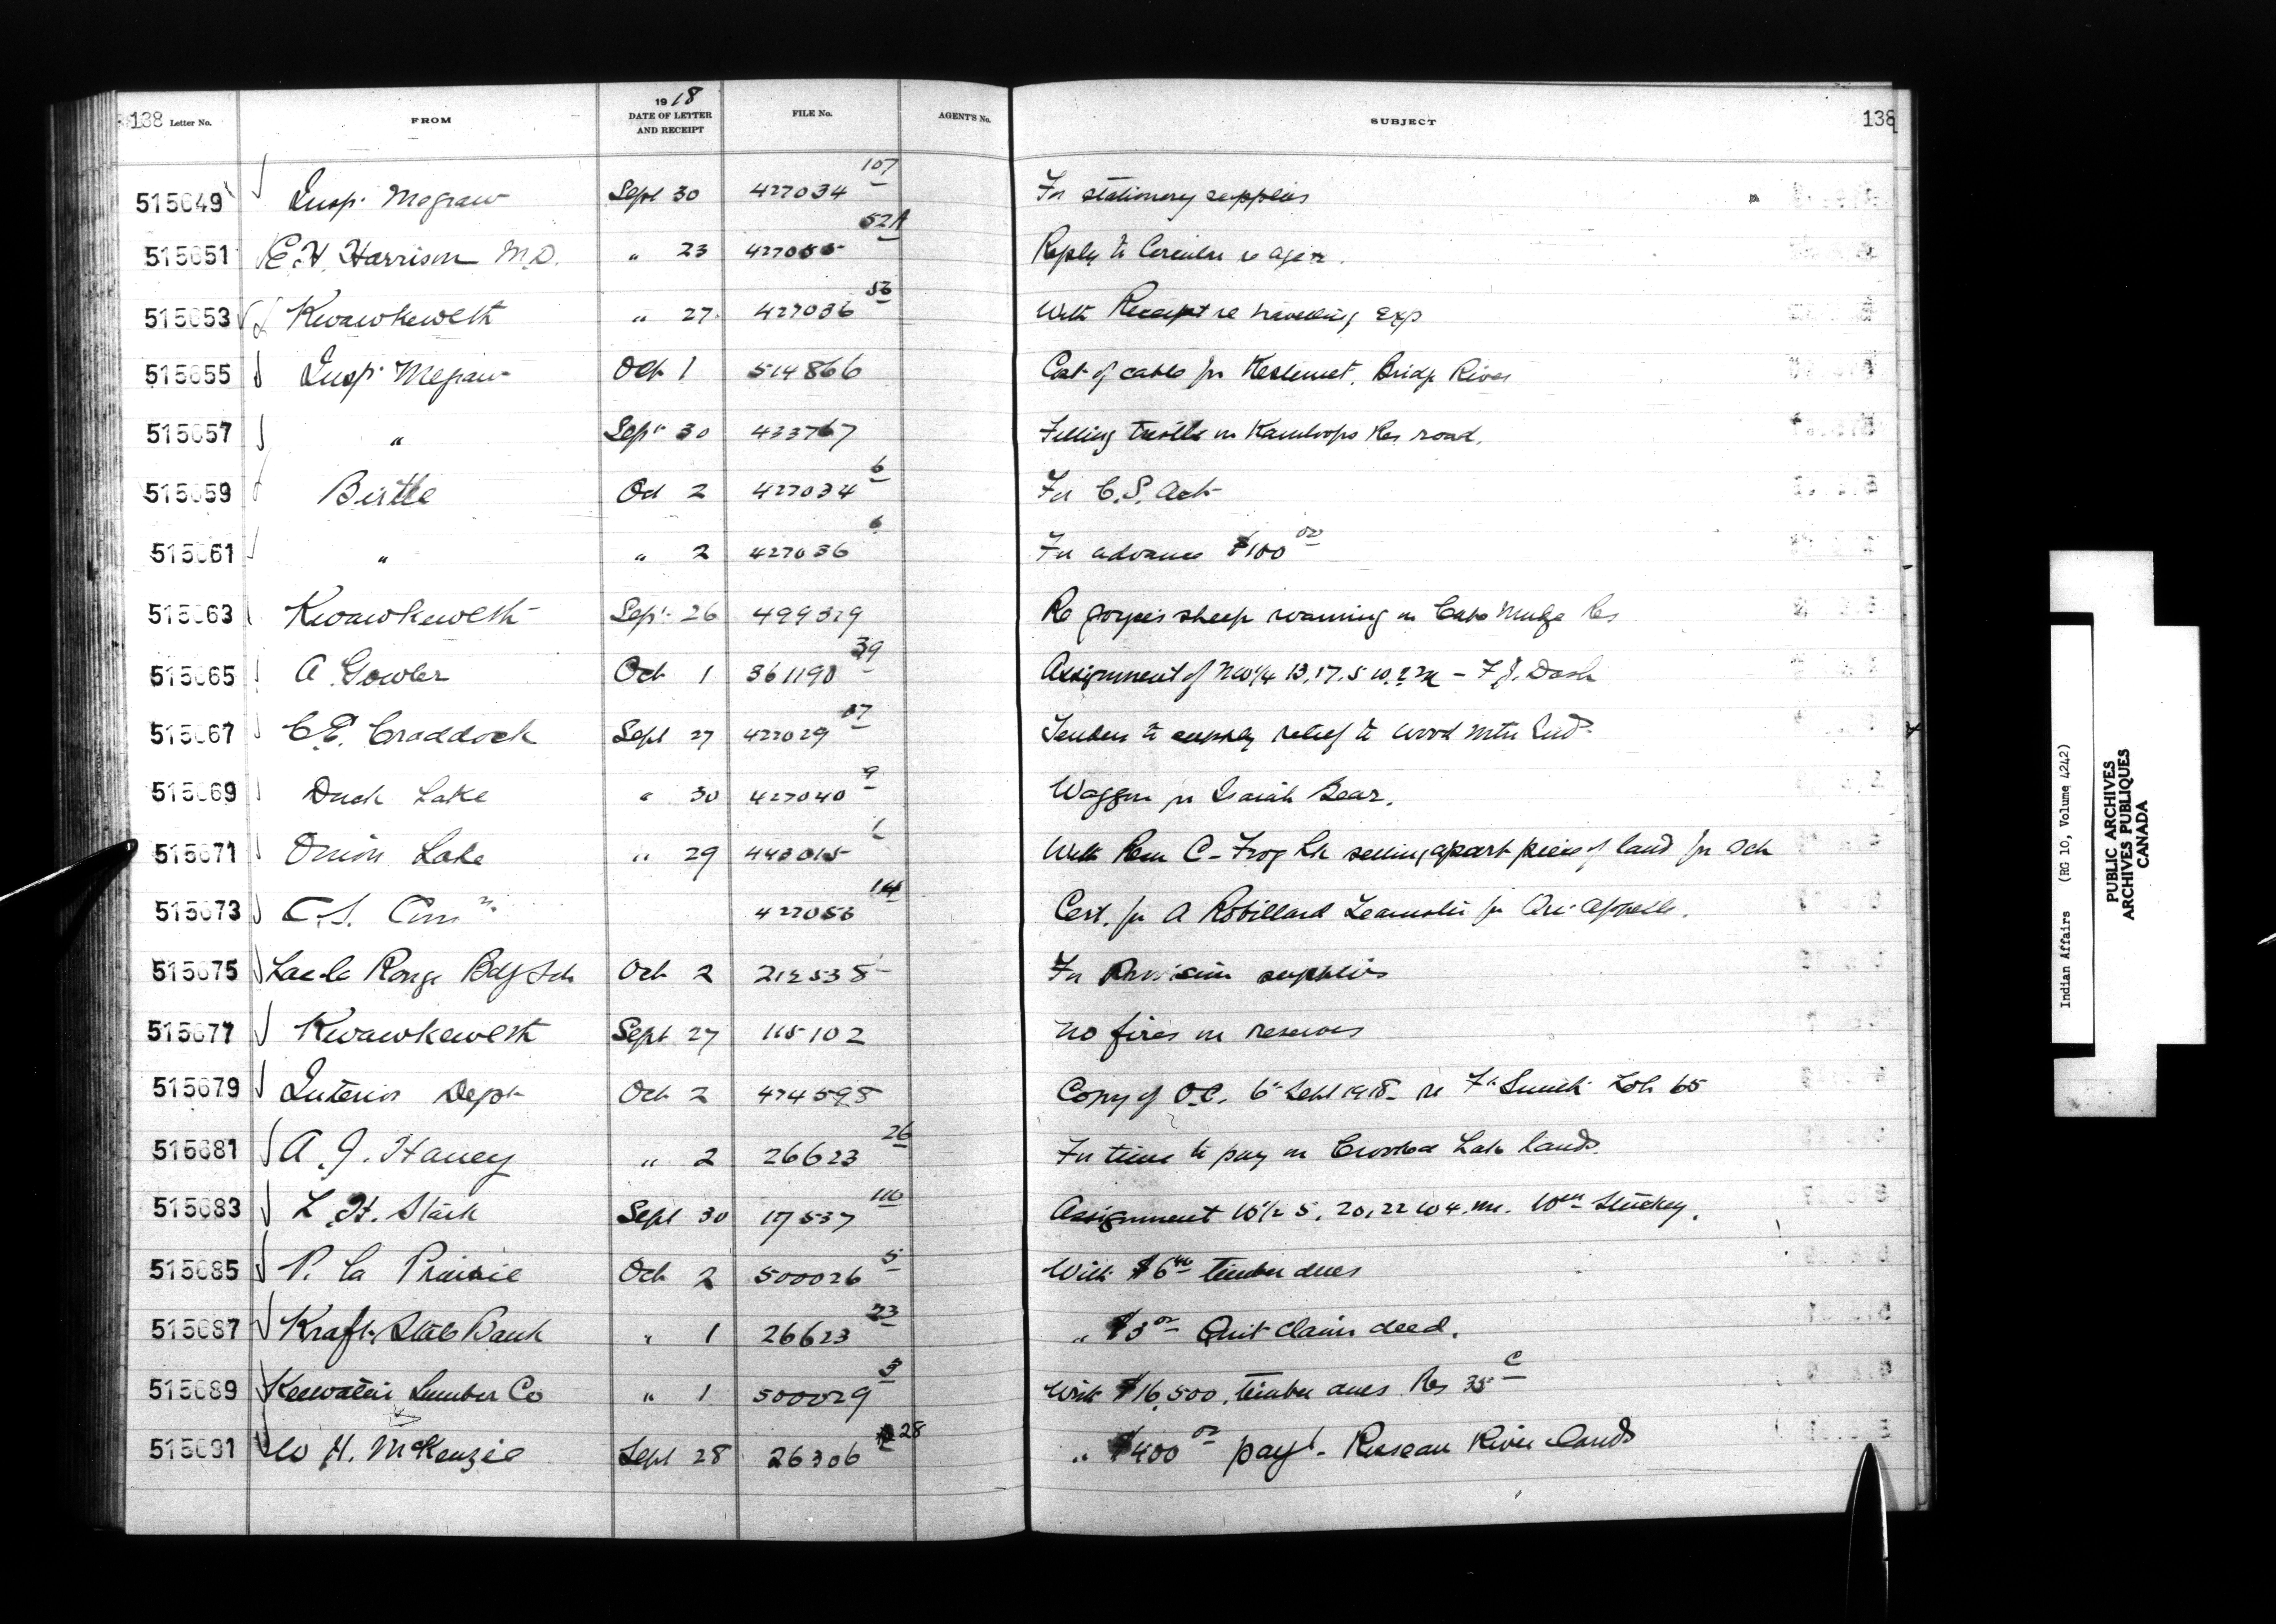 138 Letter No. FROM 1918 DATE OF LETTER AND RECEIPT FILE No. AGENT'S No. SUBJECT 138
515649 Insp. Megraw Sept 30 427034 107 For stationery supplies
515651 E.H. Harrison M.D. " 23 427055 52A Reply to Circular re
515653 Kwawkewlth " 27 427036 53 With Receipt re travelling Exp
515655 Insp. Megraw Oct 1 514866 Cost of cable for Bridge River
515657 " Sept 30 433767 Filling trestle on Kamloops Res road.
515659 Birtle Oct 2 427034 6 For C.S. Act
515661 " " 2 427036 6 For advance $100 00
515663 Kwawkewlth Sept 26 499319 Re sheep roaming on Cape Mudge Res
515665 A Gowler Oct 1 361190 39 Assignment of NW 1/4 13.17.5 W.2 M - F.J. Dash
515667 C.E. Craddock Sept 27 427029 07 Tenders to supply relief to Wood Mtn Inds
515669 Duck Lake " 30 427040 9 Waggon for Isaiah Bear.
515671 Onion Lake " 29 443015 1 With C - Frog Lk setting apart piece of land for Sch
515673 C.S. Comn. 427053 114 Cert. for A Robillard Teamster for Qu'Appelle.
515675 Lac la Ronge Bdg Sch Oct 2 212535 For Provision supplies
515677 Kwawkewlth Sept 27 115102 No fires on reserves
515679 Interior Dept Oct 2 474598 Copy of O.C. 6th Sept 1918 - re Ft Smith Lot 65
515681 A.J. Haney " 2 26623 26 For time to pay on Crooked Lake lands.
515683 L.H. Stack Sept 30 17537 110 Assignment W 1/2 5, 20, 22 W 4. M. Wm Stuckey.
515685 P. La Prairie Oct 2 500026 5 With $6 40 timber dues
515687 Kraft State Bank " 1 26623 23 " $3 00 Quit claim deed.
515689 Keewatin Lumber Co " 1 500029 3 With $16,500, timber dues Res 35 C
515691 W H. McKenzie Sept 28 26306 28 " $400 00 payt - Roseau River lands
Indian Affairs (RG 10, Volume 4242)
PUBLIC ARCHIVES
ARCHIVES PUBLIQUES
CANADA